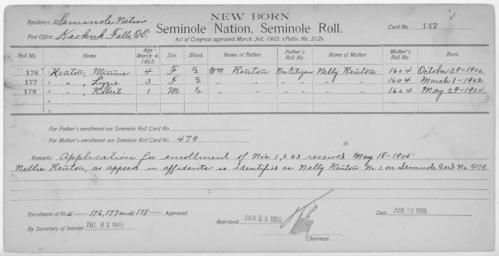 NEW BORN
Residence Seminole Nation
Seminole Nation, Seminole Roll.
Card No. 147
Post Office Keokuk Falls, O.T.
Act of Congress approved March 3rd, 1905. (Public No. 212).
Roll No. Name Age March 4, 1905. Sex. Blood. Name of Father Father's Roll No. Name of Mother Mother's Roll No. Born.
176 Minnie 4 F ½ Wm Non Citizen Nelly 1604 October 29-1900
177 " , 3 F ½ " " " " " 1604 March 1-1902
178 " , Robert 1 M ½ " " " " " 1604 May 29-1904
For Father's enrollment see Seminole Roll Card No.
For Mother's enrollment see Seminole Roll Card No. 479
Remarks Application for enrollment of Nos 1, 2 & 3 received May 18-1905
Nellie, as appears in affidavits is identified as Nelly No. 1 on Seminole Card No. 479.
Enrollment of No's 176, 177 and 178 Approved
By Secretary of Interior 1905
Approved 1905
Chairman.
Date JUN 1905